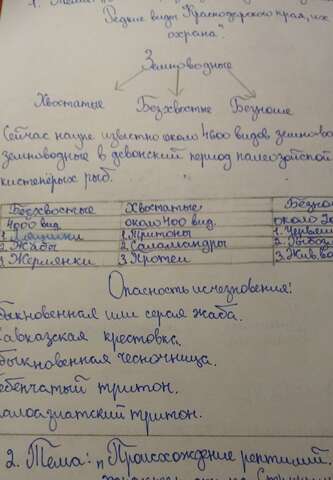 1. Тема:
"Редкие виды Краснодарского края, их
охрана".
Земноводные
Хвостатые Безхвостые Безногие
Сейчас науке известно около 4600 видов земново
земноводные в девонский период палеозойской
кистепёрых рыб.
Безхвостые Хвостатые Безног
4000 вид. около 400 вид. около
1. Лягушки 1. Тритоны 1. Червяги
2. Жабы 2. Саламандры 2. Рыбоз
3. Жерлянки 3. Протеи 3.
Опасность исчезновения:
быкновенная или серая жаба.
авказская крестовка.
быкновенная чесночница.
ебенчатый тритон.
алоазиатский тритон.
2. Тема: "Происхождение рептилий.